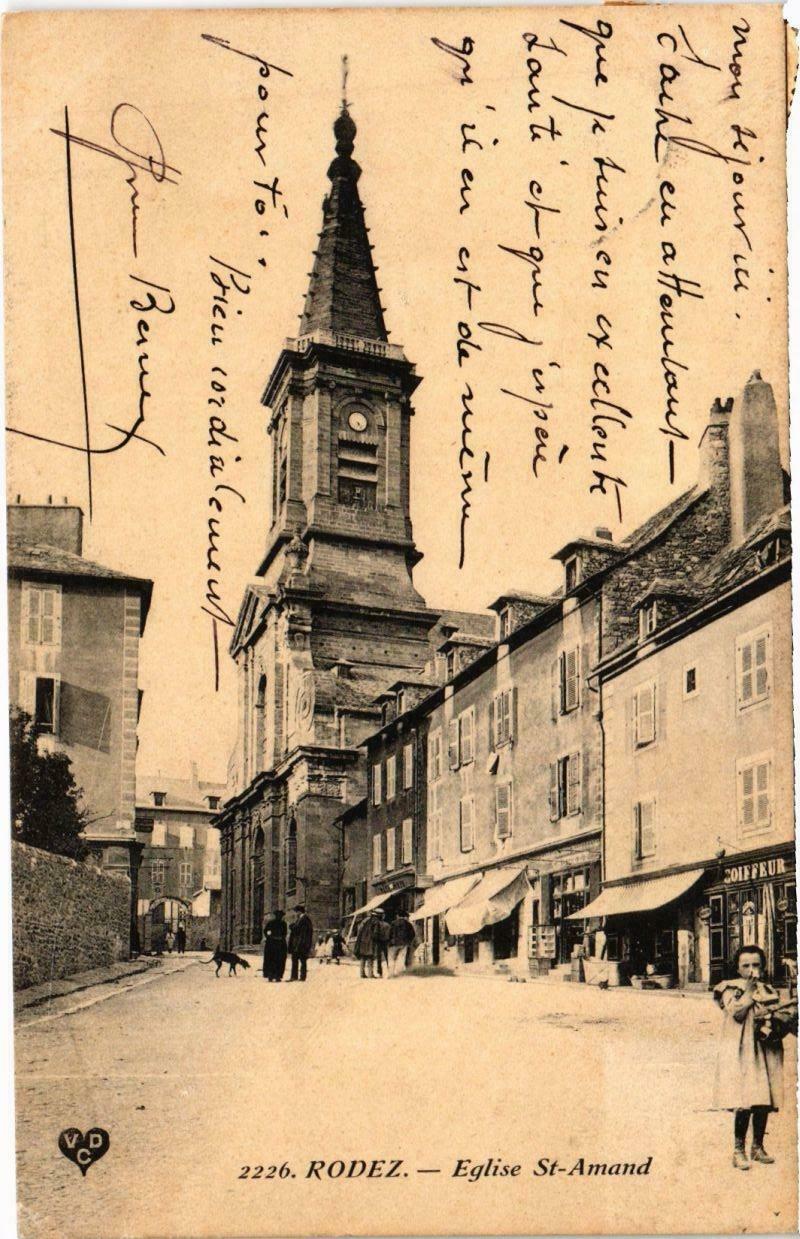 mon séjour ici.
Cache en attendant
que je suis en excellente
santé et que j'espère
qu'il en est de même
pour toi.
Bien cordialement
COIFFEUR
VDC
2226. RODEZ. — Eglise St-Amand